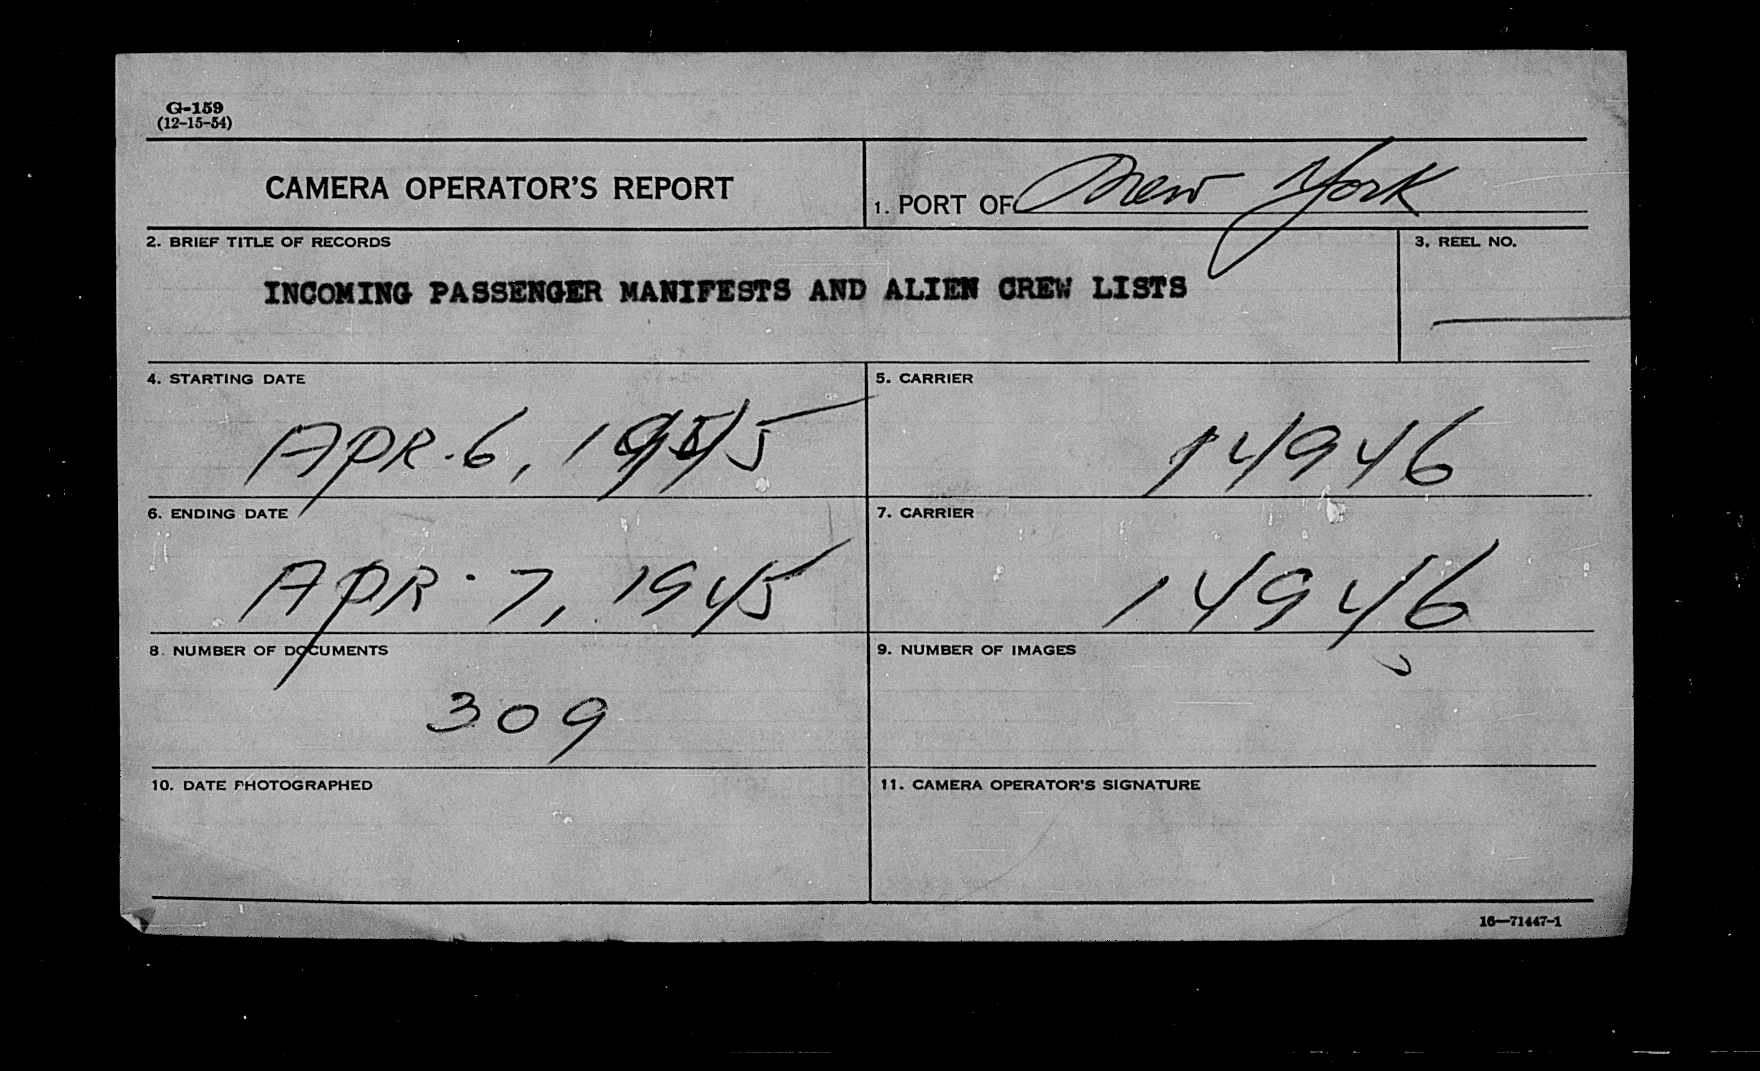 G-159
(12-15-54)
CAMERA OPERATOR'S REPORT
1. PORT OF New York
2. BRIEF TITLE OF RECORDS
3. REEL NO.
INCOMING PASSENGER MANIFESTS AND ALIEN CREW LISTS
4. STARTING DATE
5. CARRIER
APR. 6, 1945
14946
6. ENDING DATE
7. CARRIER
APR. 7, 1945
14946
8. NUMBER OF DOCUMENTS
9. NUMBER OF IMAGES
309
10. DATE PHOTOGRAPHED
11. CAMERA OPERATOR'S SIGNATURE
16—71447-1